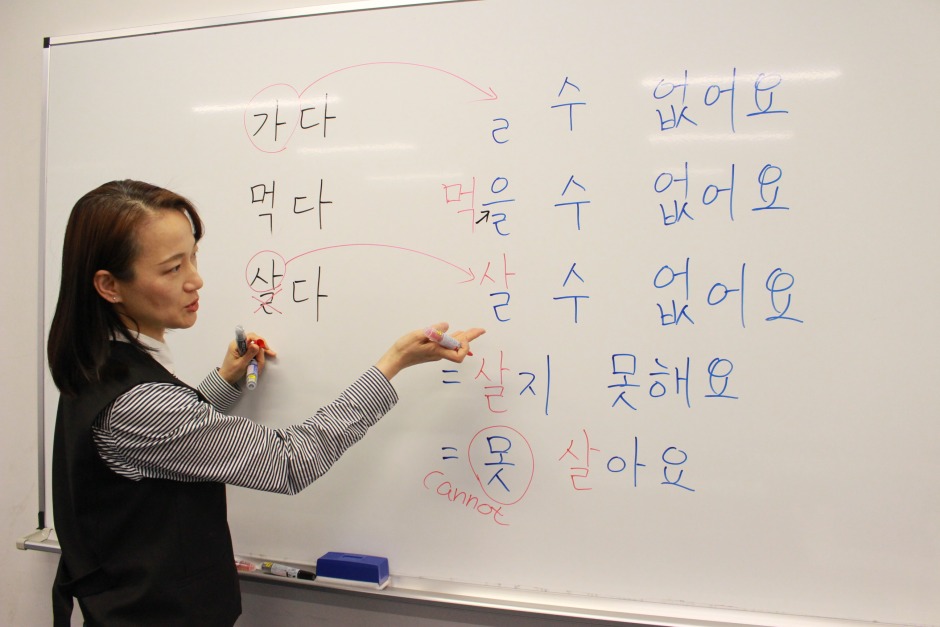 가다 ㄹ 수 없어요
먹다 먹을 수 없어요
살다 살 수 없어요
= 살지 못해요
= 못 살아요
cannot